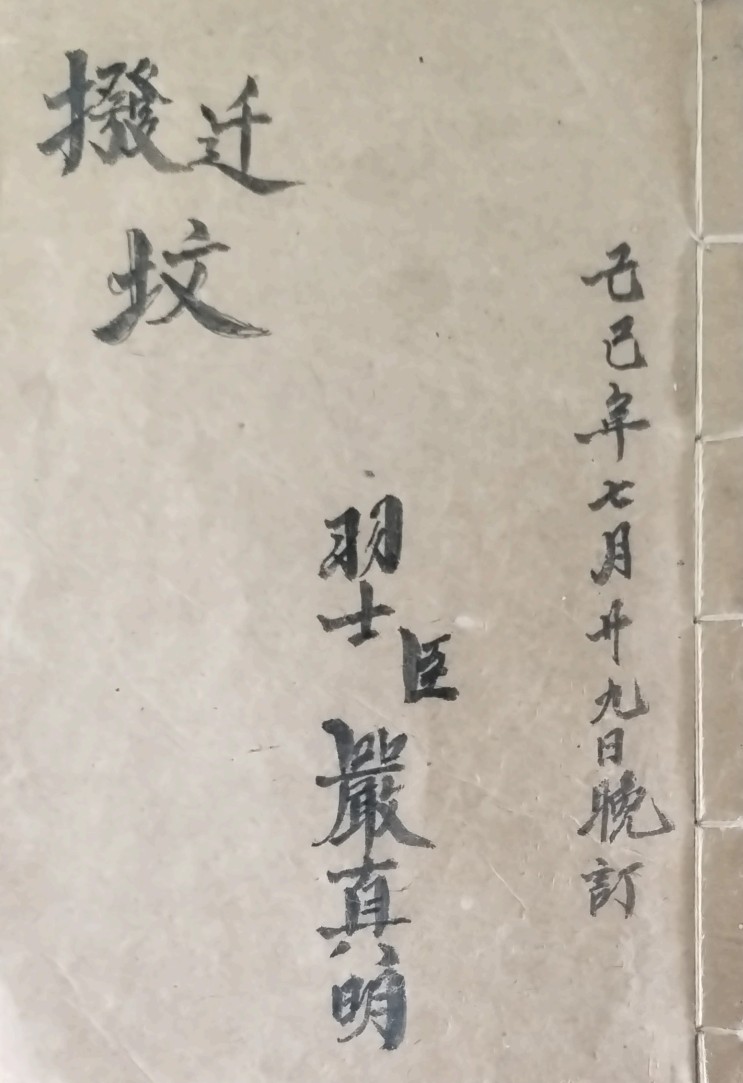 巳年七月廿九日晚訂
羽士臣嚴真明
撥迁
坟